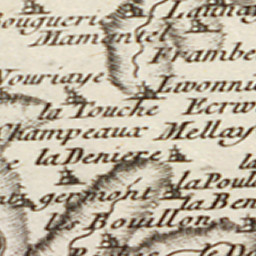 Launay
Bouguerie
Mamentel
Frambe
Nouriaye
Livonnie
la Touche Ecriv
Champeaux Mellay
la Deniere
la
la Poul
germont
la Ben
les Bouillons